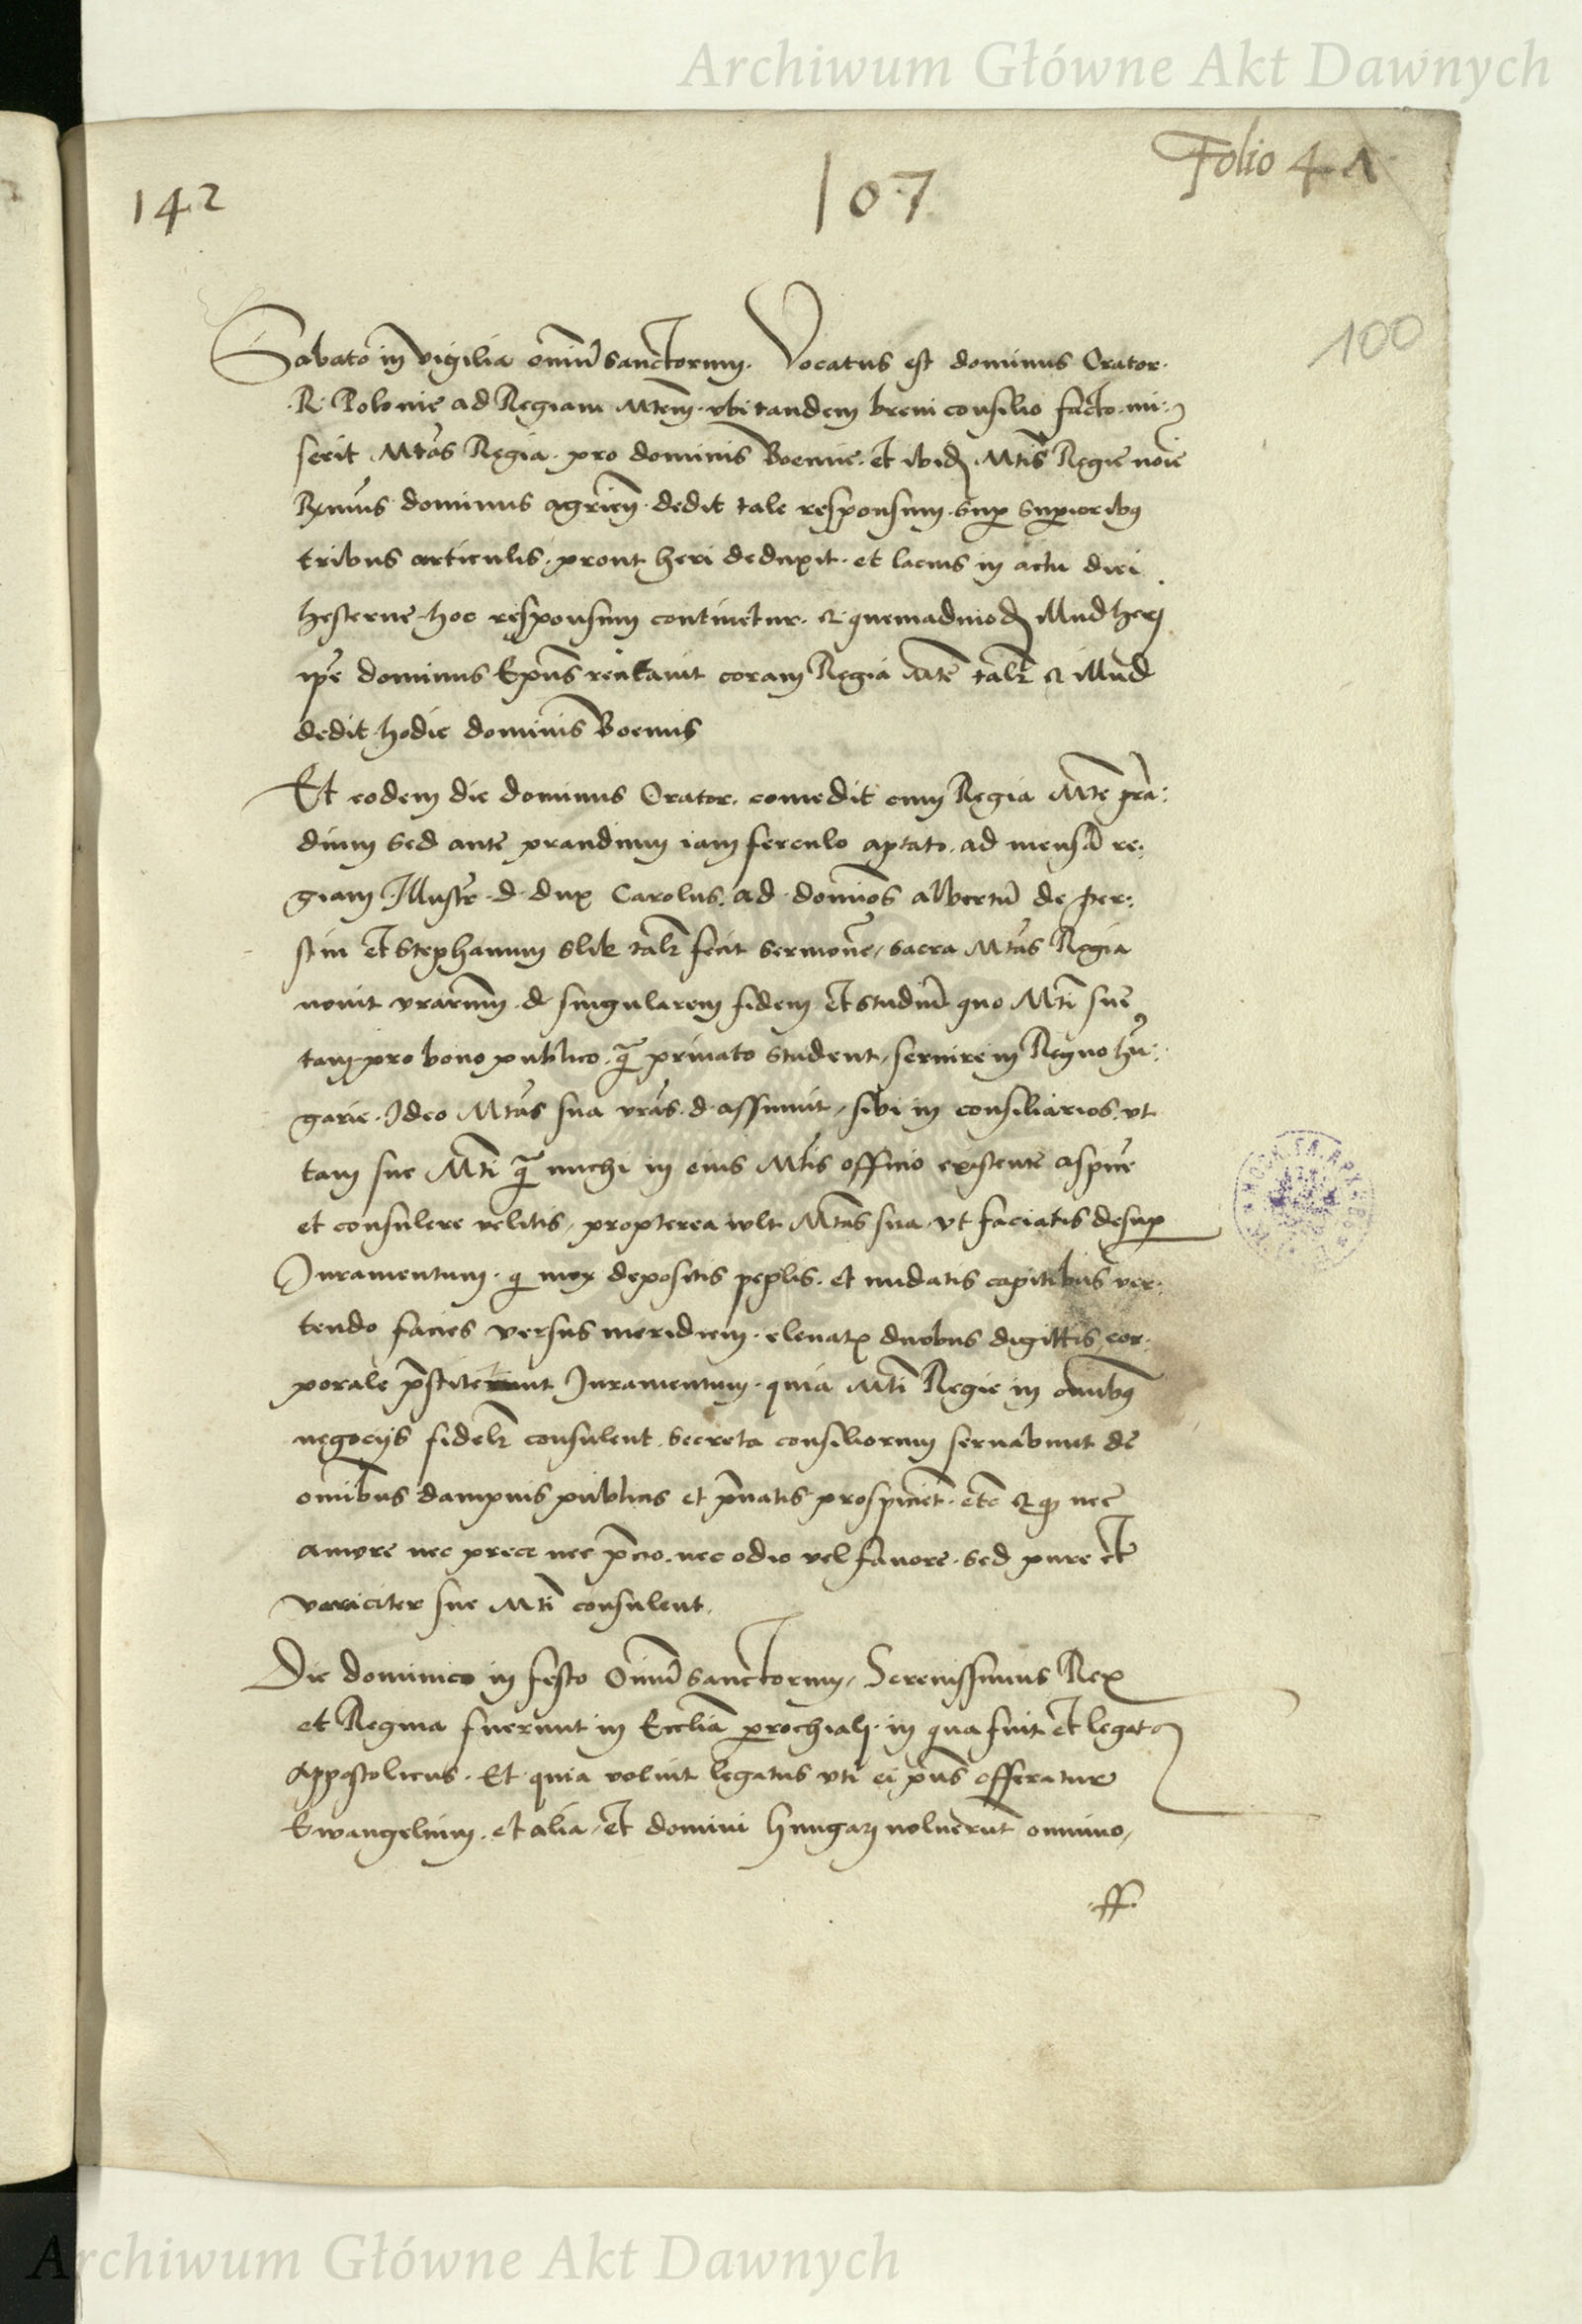 Archiwum Główne Akt Dawnych
Folio 41
142
107
100
Sabato in vigilia omniu sanctorum. Vocatus est dominus Orator.
.R. Polonie ad Regiam Mtem. vbi tandem breui consilio facto. mi:
serit Mtas Regia. pro dominis Boemie. et ibid Mtis Regie noie
Rmus dominus agrien. dedit tale responsum. sup superiorib9
tribus articulis. prout heri deduxit. et lacius in actu diei
hesterne hoc responsum continetur. et quemadmod illud heri
ipe dominus Epus recitauit coram Regia Mte talr et illud
dedit hodie dominis Boemis
Et eodem die dominus Orator. comedit cum Regia Mte pra:
dium sed ante prandium iam ferculo aptato. ad mensa re:
giam. Illustr. d. dux Carolus. ad dominos albertu de per:
stin et Stephanum slik talr fecit sermone, sacra Mtas Regia
nouit vrarum. d. singularem fidem et studiu quo Mti sue
tam pro bono publico. qa priuato student, seruire in Regno hu:
garie. Ideo Mtas sua vras. d. assumit, sibi in consiliarios. vt
tam sue Mti qa michi in eius Mtis officio existente aspire
et consulere velitis, propterea wlt Mtas sua vt faciatis desup
Iuramentum. q mox depositis peplis. et nudatis capitibus ver:
tendo facies versus meridiem. eleuatis duobus digittis cor:
porale pstiterunt Iuramentum. quia Mti Regie in omnib9
negocijs fidelr consulent. secreta consiliorum seruabunt de
omnibus dampnis publicis et priuatis prospicient. etc et q nec
amore nec prece nec pcio. nec odio vel fauore. sed pure et
veraciter sue Mti consulent.
Die dominico in festo Omniu sanctorum, Serenissimus Rex
et Regina fuerunt in Ecclia parochiali. in qua fuit et legat9
appostolicus. Et quia voluit legatus vti ei prius offeratur
Ewangelium. et alia, et domini hungari noluerut omnino,
.ff.
Archiwum Główne Akt Dawnych